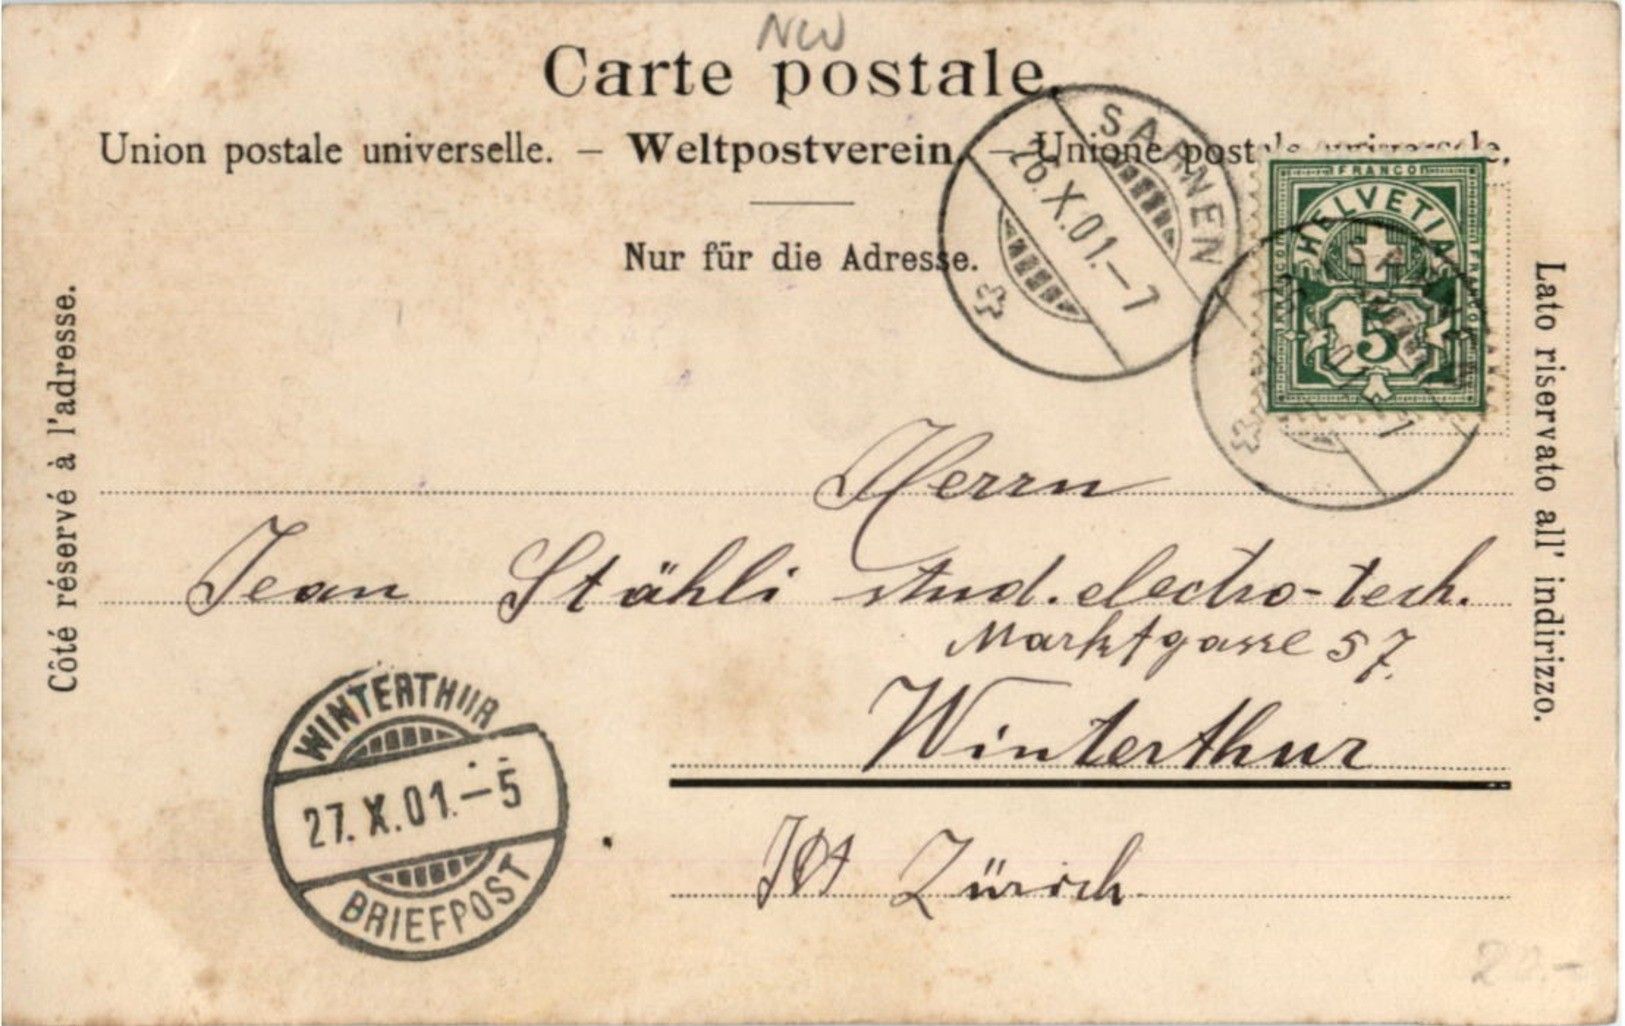 NW
Carte postale.
Union postale universelle. – Weltpostverein. – Unione postale universale.
Nur für die Adresse.
Côté réservé à l'adresse.
Lato riservato all' indirizzo.
SARNEN
26.X.01.–7
FRANCO
HELVETIA
FRANCO
FRANCO
5
Herrn
Jean Stähli stud. electro-tech.
Marktgasse 57.
Winterthur
Kt Zürich.
WINTERTHUR
27.X.01.–5
BRIEFPOST
20.–